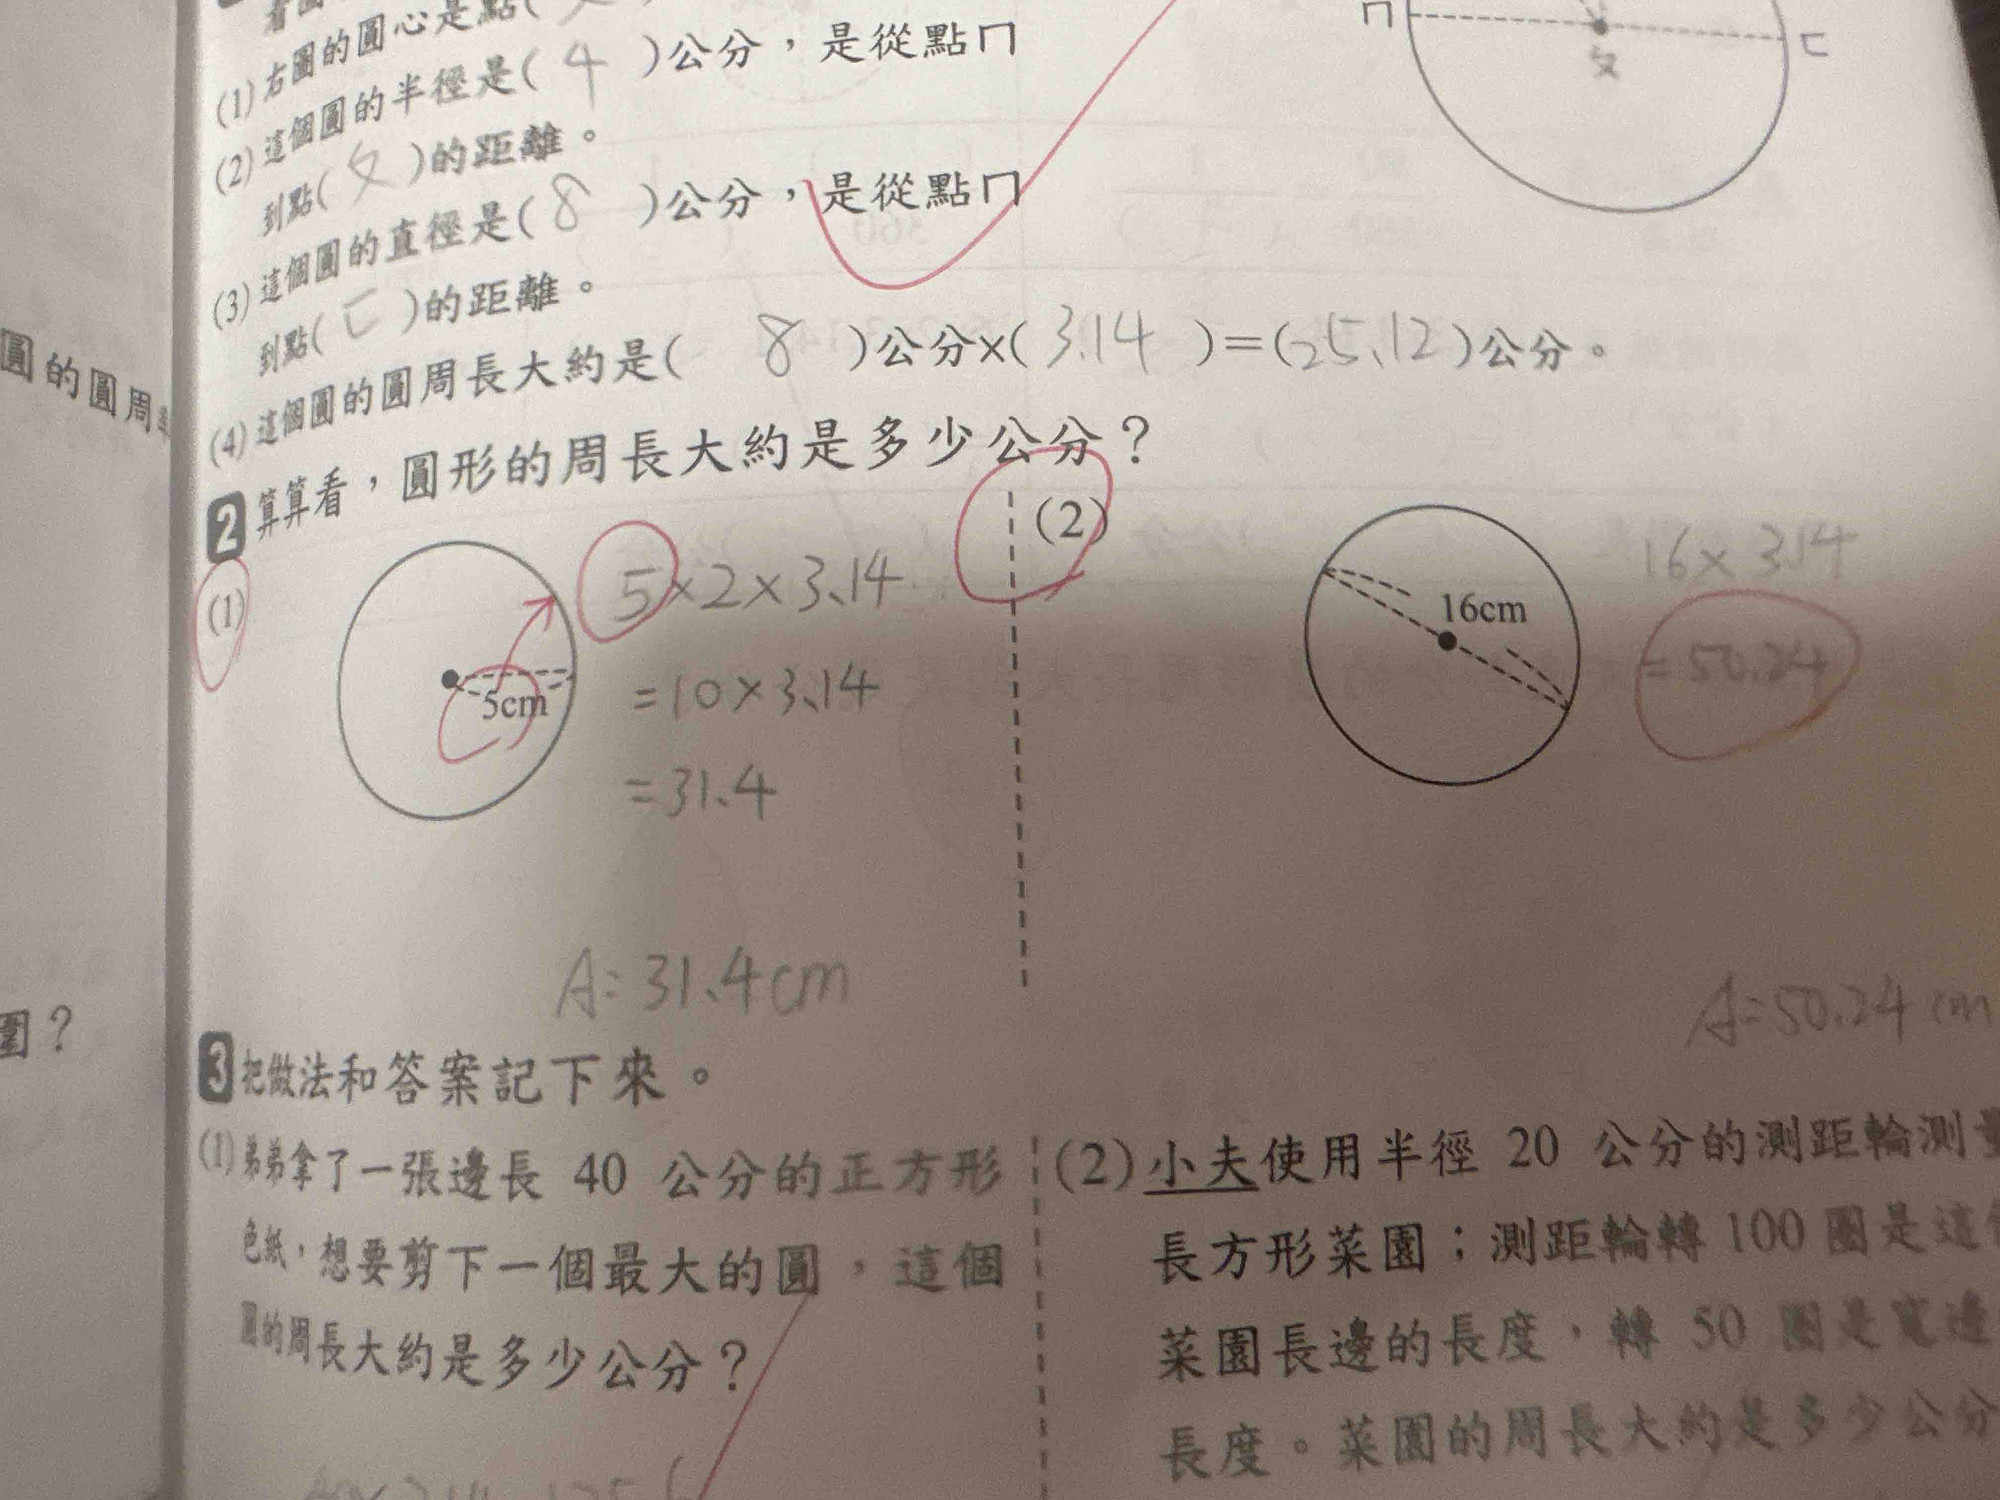 (1)右圖的圓心是點(
(2)這個圓的半徑是( 4 )公分,是從點ㄇ
到點(ㄆ)的距離。
(3)這個圓的直徑是( 8 )公分,是從點ㄇ
到點(ㄈ)的距離。
(4)這個圓的圓周長大約是( 8 )公分×( 3.14 )=(25.12)公分。
ㄇ ㄆ ㄈ
2 算算看,圓形的周長大約是多少公分?
(1)
5cm
5×2×3.14
=10×3.14
=31.4
A:31.4cm
(2)
16cm
16×3.14
=50.24
A:50.24cm
3 把做法和答案記下來。
(1)弟弟拿了一張邊長 40 公分的正方形
色紙,想要剪下一個最大的圓,這個
圓的周長大約是多少公分?
(2)小夫使用半徑 20 公分的測距輪測量
長方形菜園;測距輪轉 100 圈是這
菜園長邊的長度,轉 50 圈是寬邊
長度。菜園的周長大約是多少公分
圓的圓周率
圍?